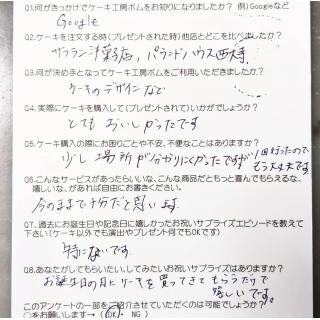 Q1.何がきっかけでケーキ工房ボムをお知りになりましたか？ 例)Googleなど
Google
Q2.ケーキを注文する時(プレゼントされた時)他店とどこを比べましたか？
サフラン洋菓子店, パランドハウス西様
Q3.何が決め手となってケーキ工房ボムをご利用いただきましたか？
ケーキのデザインなど
Q4.実際にケーキを購入して(プレゼントされて)いかがでしょうか？
とてもおいしかったです
Q5.ケーキ購入の際にお困りごとや不安、不便なことはありますか？
少し場所が分かりにくかったですが1回行ったので
もう大丈夫です
Q6.こんなサービスがあったらいいな、こんな商品だともっと喜んでもらえるな、
嬉しいな、があれば自由にお書きください。
今のままで十分だと思います。
Q7.過去にお誕生日や記念日に嬉しかったお祝いサプライズエピソードを教えて
下さい(ケーキ以外でも演出やプレゼント何でもOKです)
特にないです。
Q8.あなたがしてもらいたい、してみたいお祝いサプライズはありますか？
お誕生日の日にケーキを買ってきてもらうだけで
嬉しいです。
このアンケートの一部をご紹介させていただくのは可能でしょうか？
○をお願いします→ (OK・ NG )